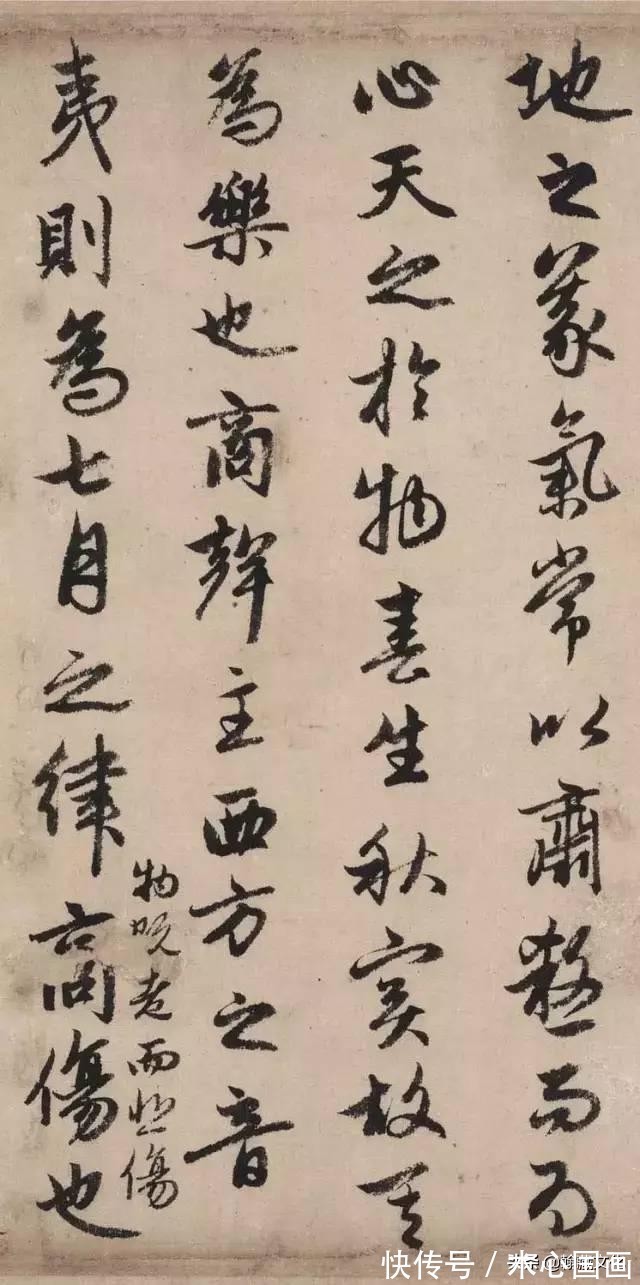 地之義氣常以肅殺而為
心天之於物春生秋實故其
為樂也商聲主西方之音
夷則為七月之律商傷也
物既老而悲傷
快传号/水心国画